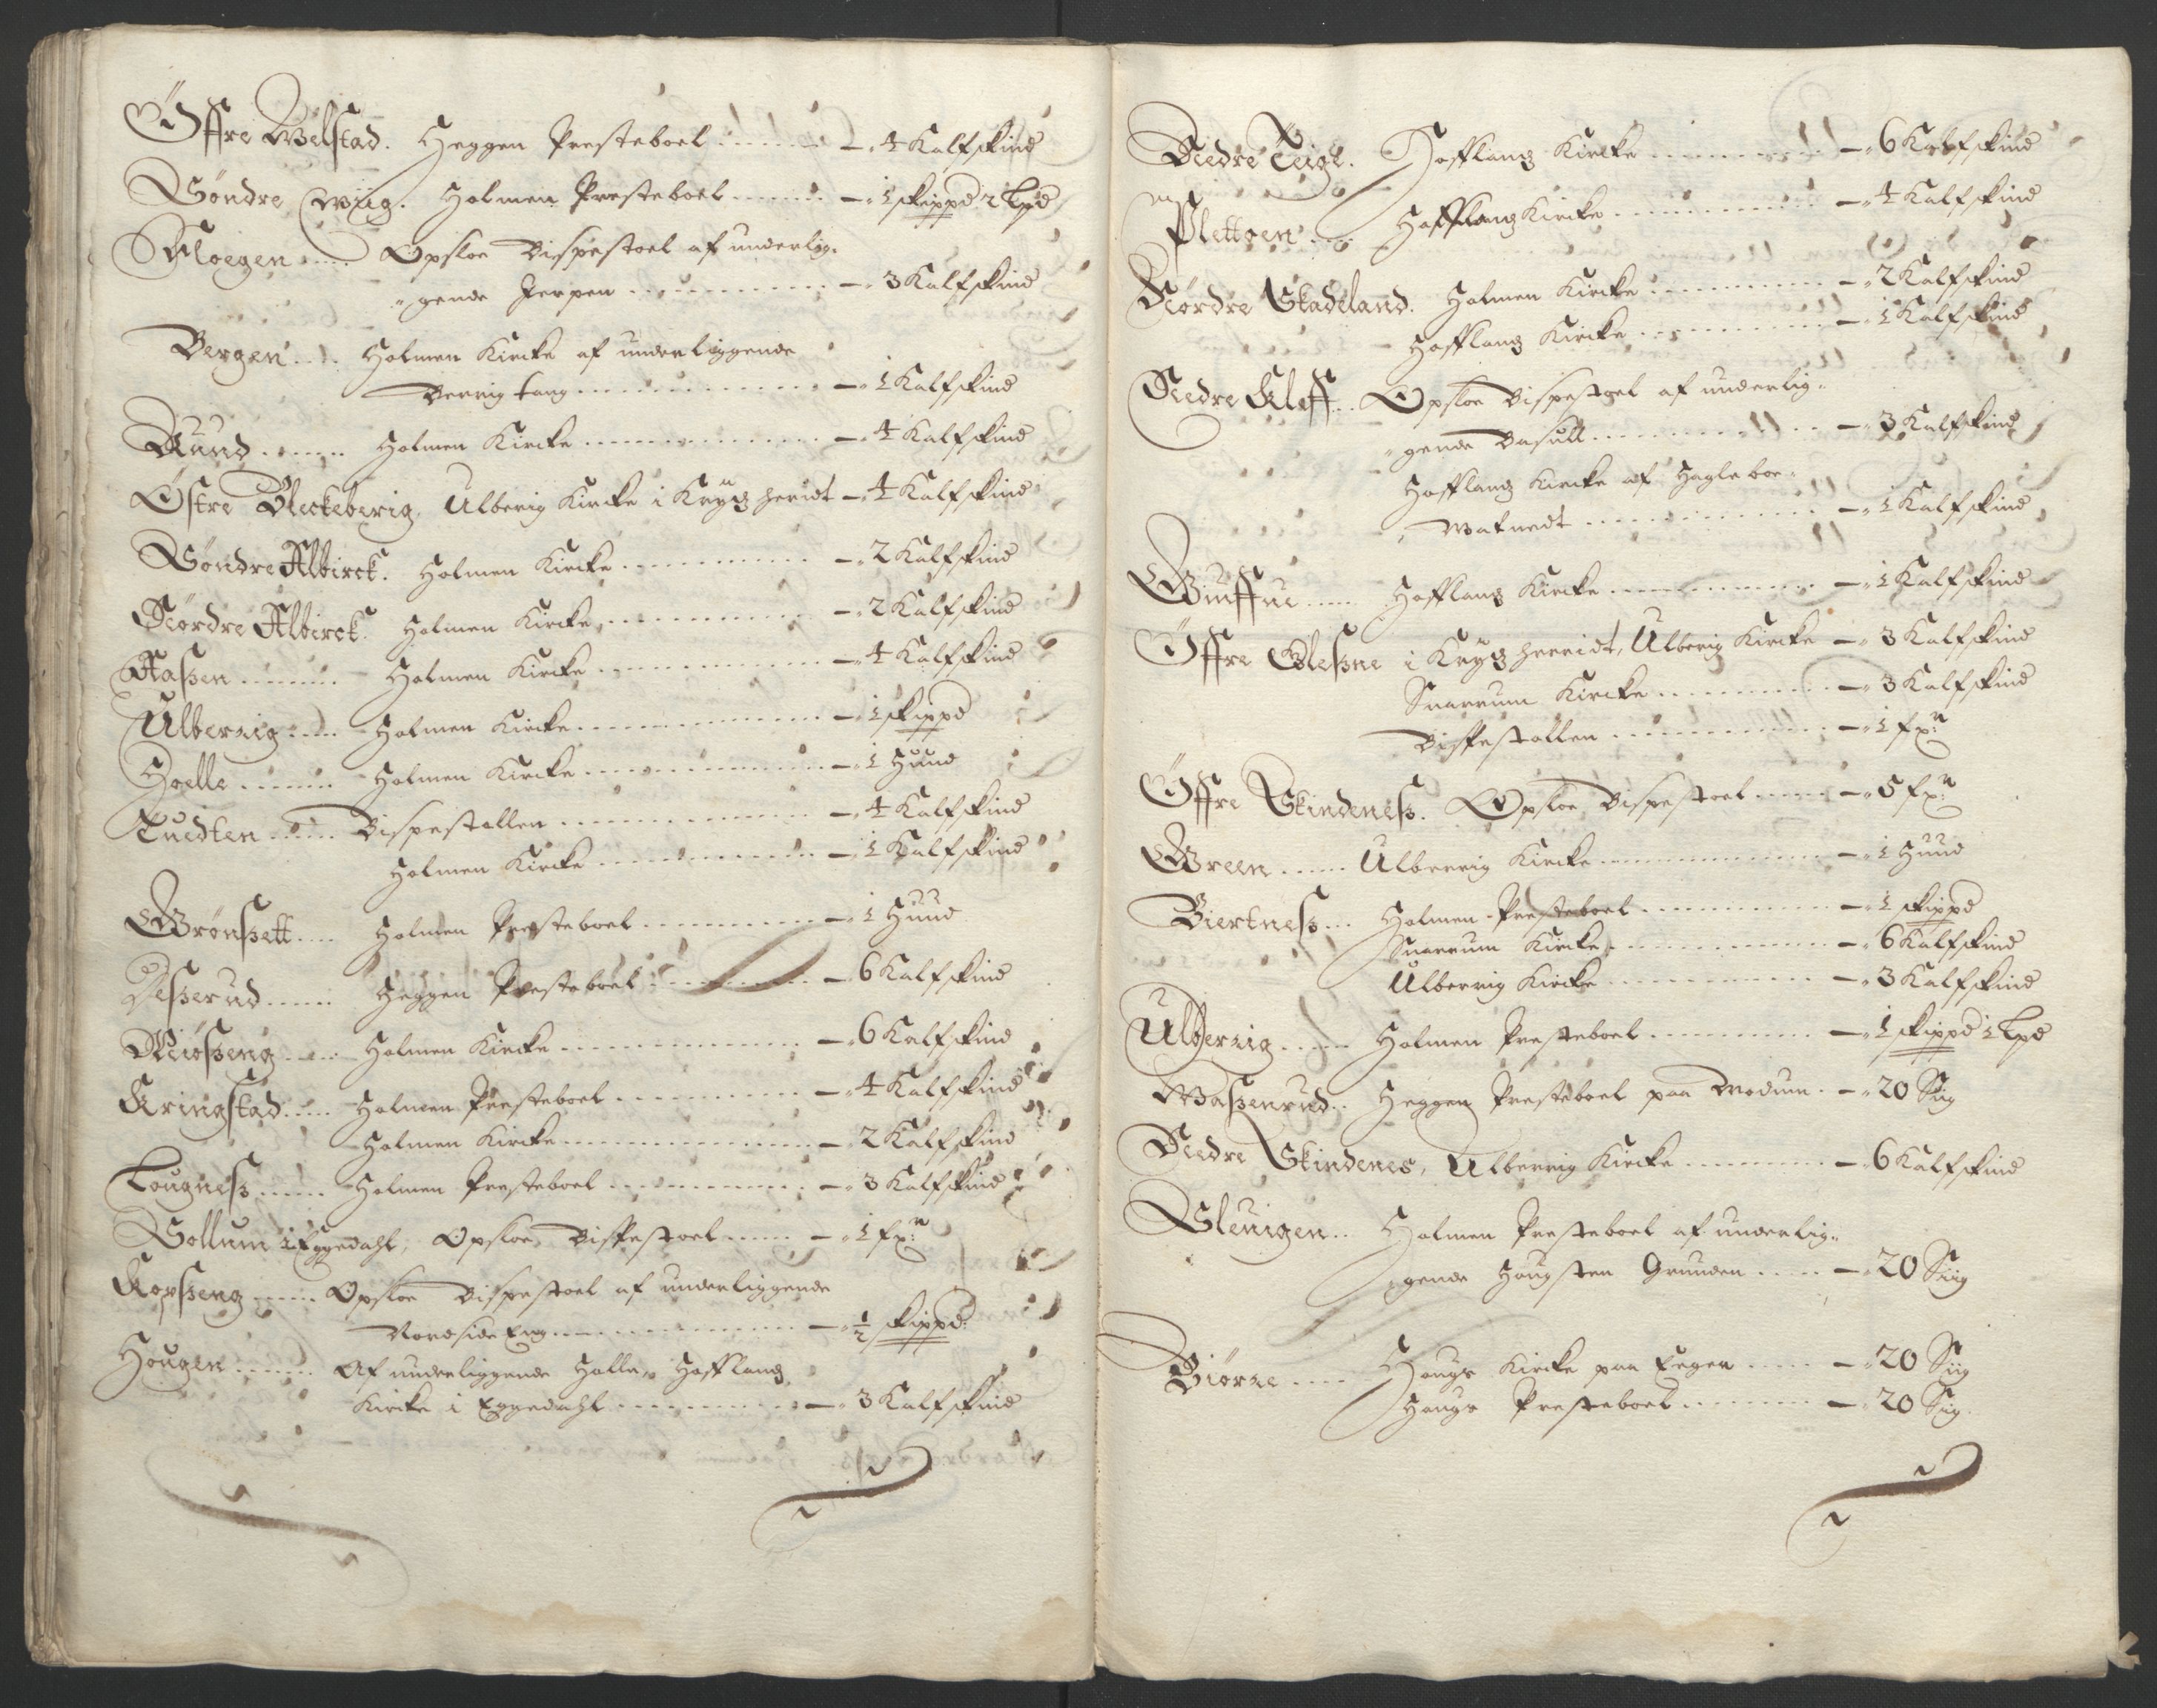 Øffre Welstad. Heggen Presteboel ...... – 4 Kalfskind
Søndre Wiig. Holmen Presteboel ...... – 1 skippd 2 Lpd
Floegen ..... Opsloe Bispestoel af underlig-
gende Jerpen ............ – 3 Kalfskind
Bergen .... Holmen Kircke af underliggende
Berrig tang ............ – 1 Kalfskind
Ruud ...... Holmen Kircke ............ – 4 Kalfskind
Østre Bleckeberig, Ulberig Kircke i Krydtzheridt – 4 Kalfskind
Søndre Albirck. Holmen Kircke ............ – 2 Kalfskind
Nørdre Albirck. Holmen Kircke ............ – 2 Kalfskind
Aaßen ....... Holmen Kircke ............ – 4 Kalfskind
Ulberrig ..... Holmen Kircke ............ – 1 skippd
Hoelle ....... Holmen Kircke ............ – 1 Huud
Tuedten ...... Bispestollen ............ – 4 Kalfskind
Holmen Kircke ............ – 1 Kalfskind
Grønßett .... Holmen Presteboel ............ – 1 Huud
Deßerud ...... Heggen Presteboel ............ – 6 Kalfskind
Miøßeng ...... Holmen Kircke ............ – 6 Kalfskind
Kringstad ..... Holmen Presteboel ............ – 4 Kalfskind
Holmen Kircke ............ – 2 Kalfskind
Lougneß ...... Holmen Presteboel ............ – 3 Kalfskind
Sollum i Eggedahl, Opsloe Bispestoel ...... – 1 fx:n
Kopßeng ...... Opsloe Bispestoel af underliggende
Nordside Eng ............ – ½ skippd
Hougen ....... Af underliggende Holle, Hoffland
Kircke i Eggedahl ............ – 3 Kalfskind
Nedre Teigl. Hoffland Kircke ............ – 6 Kalfskind
Pletten ..... Hoffland Kircke ............ – 4 Kalfskind
Nørdre Stadeland. Holmen Kircke ............ – 2 Kalfskind
Hoffland Kircke ............ – 1 Kalfskind
Nedre Kleff .. Opsloe Bispestoel af underlig-
gende Basull ............ – 3 Kalfskind
Hoffland Kircke af Hagleboe-
Watnedt ............ – 1 Kalfskind
Guffue ..... Hoffland Kircke ............ – 1 Kalfskind
Øffre Gleßne i Krydtzherridt, Ulberig Kircke – 3 Kalfskind
Snarrum Kircke ............ – 3 Kalfskind
Bispestollen ............ – 1 fx:n
Øffre Skindeneß. Opsloe Bispestoel ...... – 5 fx:n
Green ...... Ulberrig Kircke ............ – 1 Huud
Biertneß ... Holmen Presteboel ............ – 1 skippd
Snarrum Kircke ............ – 6 Kalfskind
Ulberrig Kircke ............ – 3 Kalfskind
Ulberrig ...... Holmen Presteboel ............ – 1 skippd 1 Lpd
Maßenrud .. Heggen Presteboel paa Modum. – 20 Sk
Nedre Skindenes, Ulberrig Kircke ......... – 6 Kalfskind
Sleuigen .. Holmen Presteboel af underlig-
gende Hougsten Grunden ..... – 20 Sk
Biørre .... Hougs Kircke paa Eeger ..... – 20 Sk
Hougs Presteboel ......... – 20 Sk